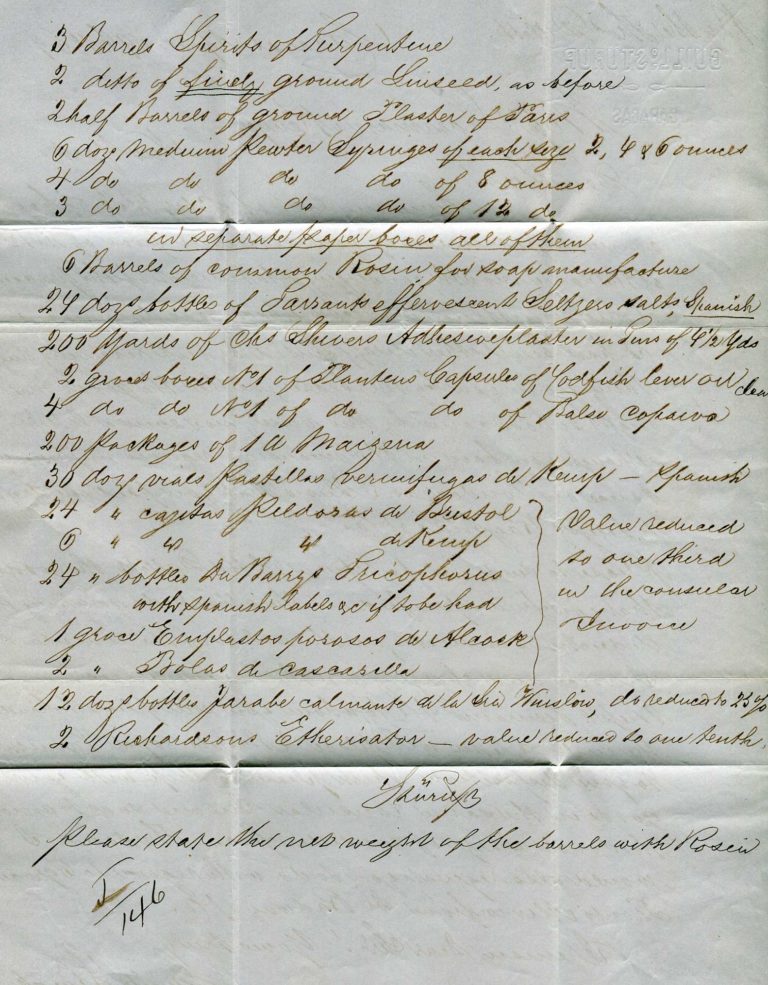 3 Barrels Spirits of Turpentine
2 ditto of finely ground Linseed, as before
2 half Barrels of ground Plaster of Paris
6 doze Medium Pewter Syringes of each size 2, 4 & 6 ounces
4 do do do do of 8 ounces
3 do do do do of 12 do
in separate paper boxes all of them
6 Barrels of common Rosin for soap manufacture
24 doze bottles of Tarrants effervescent Seltzers salts, Spanish
200 Yards of Chs Shivers Adhesiveplaster in Tins of 4 1/2 Yds
2 groces boxes No 1 of Plantens Capsules of Codfish lever oil clear
4 do do No 1 of do do of Balso copaiva
200 Packages of 1 lb Maizena
30 doze vials Pastillas vermifugas de Kemp — Spanish
24 " cajitas Pildoras de Bristol
6 " " " de Kemp
24 " bottles Barrys Tricophorus
with Spanish labels &c if to be had
1 groce Emplastos porosos de Alcock
2 " Bolas de cascarilla
Value reduced
to one third
in the consular
Invoice
12 doze bottles Jarabe calmante de la Sra Winslow, do reduced to 25 %
2 Richardsons Etherisator — value reduced to one tenth.
Stürup
Please state the net weight of the barrels with Rosin
I/146
GULL & STÜRUP
CARACAS